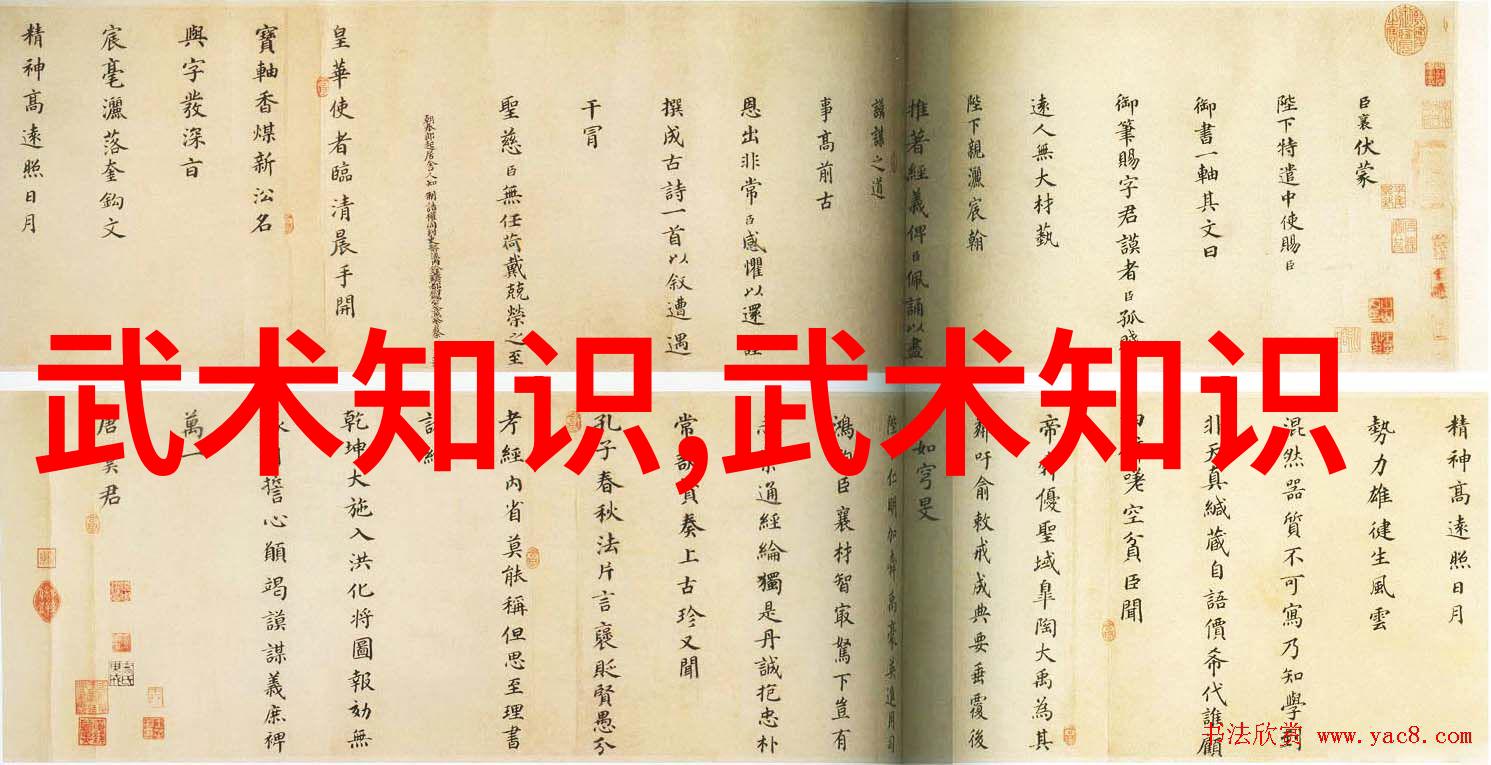 臣襄伏蒙
陛下特遣中使賜臣
御書一軸其文曰
御筆賜字君謨者臣孤賤
遠人無大材藝
陛下親灑宸翰
推著經義俾臣佩誦以盡
謨謀之道
事高前古
恩出非常臣感懼以還
撰成古詩一首以叙遭遇
干冒
聖慈臣無任荷戴兢榮之至
皇華使者臨清晨手開
寶軸香煤新沿名
與字發深旨
宸毫灑落奎鈎文
精神高遠照日月
武术知识,武术知识
精神高遠照日月
勢力雄健生風雲
混然器質不可寫乃知學到
非天真緘藏自語價希代誰顧
嗟空貧臣聞
帝舜優聖域皋陶大禹為其
鄰吁俞敕戒成典要垂覆後
如穹旻
陛下仁明加舜禹豪英進用司
鴻鈞臣襄材智最駑下豈有
通經綸獨是丹誠抱忠朴
常欲贊奏上古珍又聞
孔子春秋法片言褒貶賢愚分
考經內省莫能稱但思至理書
諸紳
乾坤大施入洪化將圖報効無
誓心願竭謨謀義庶裨
萬一
唐虞君
书法欣赏 www.yac8.com